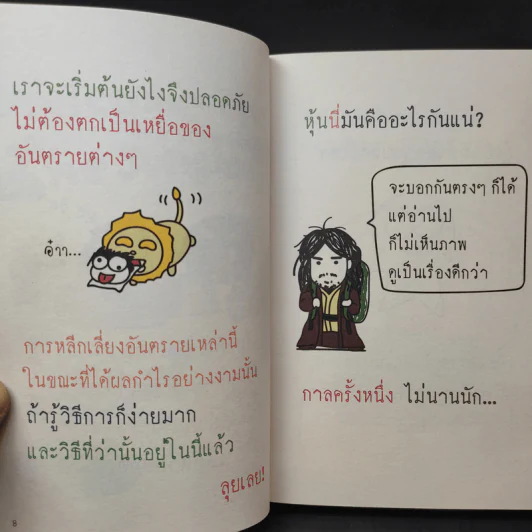 เราจะเริ่มต้นยังไงจึงปลอดภัย
ไม่ต้องตกเป็นเหยื่อของ
อันตรายต่างๆ
อ๊าา...
การหลีกเลี่ยงอันตรายเหล่านี้
ในขณะที่ได้ผลกำไรอย่างงามนั้น
ถ้ารู้วิธีการก็ง่ายมาก
และวิธีที่ว่านั้นอยู่ในนี้แล้ว
ลุยเลย!
8
หุ้นนี่มันคืออะไรกันแน่?
จะบอกกันตรงๆ ก็ได้
แต่อ่านไป
ก็ไม่เห็นภาพ
ดูเป็นเรื่องดีกว่า
กาลครั้งหนึ่ง ไม่นานนัก...